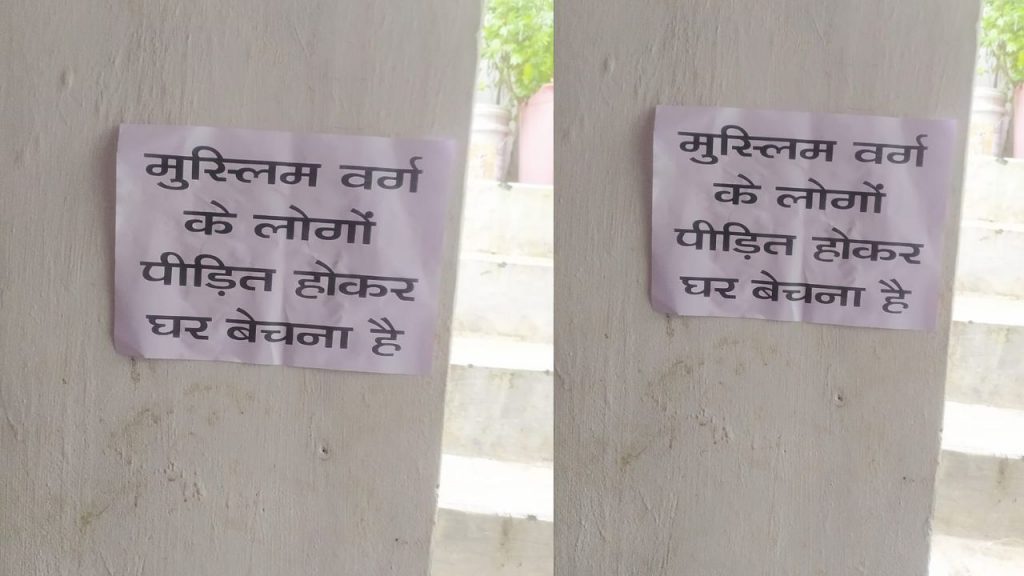 मुस्लिम वर्ग
के लोगों
पीड़ित होकर
घर बेचना है
मुस्लिम वर्ग
के लोगों
पीड़ित होकर
घर बेचना है